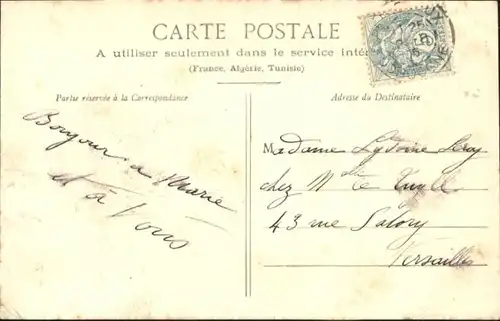 CARTE POSTALE
A utiliser seulement dans le service intér
(France, Algérie, Tunisie)
Partie réservée à la Correspondance
Adresse du Destinataire
Bonjour a Marie
et à Vous
Madame Leroy
chez Mlle
43 rue Satory
Versailles